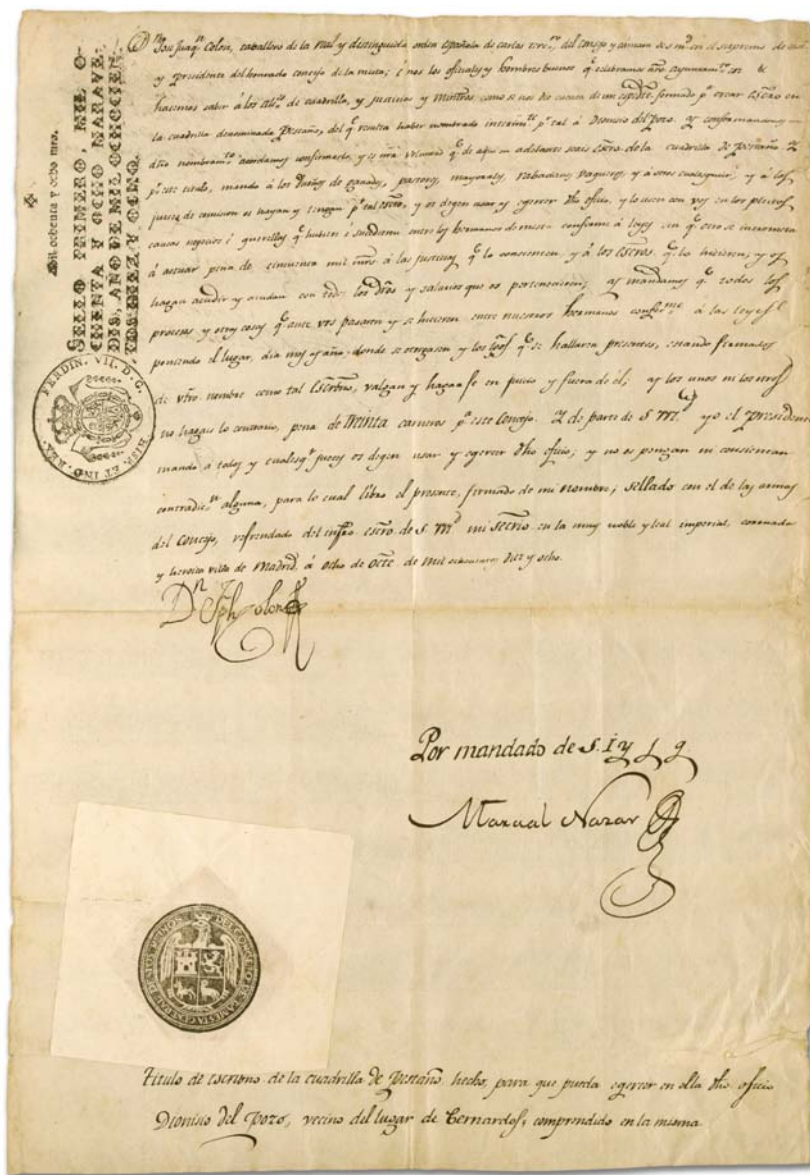 Mil ochenta y ocho mrs.
SELLO PRIMERO, MIL O-
CHENTA Y OCHO MARAVE-
DIS, AÑO DE MIL OCHOCIEN-
TOS DIEZ Y OCHO.
FERDIN. VII. D. G. HISP. ET IND. REX.
Dn. Jose Joaqn. Colon, caballero de la Real y distinguida orden española de carlos terc.ro, del consejo y camara de s. md. en el supremo de
y presidente del honrado concejo de la mesta; é nos los oficiales y hombres buenos q.e celebramos
hacemos saber á los de cuadrilla, y como se nos dio cuenta de un expdte. formado p.a crear essno en
la cuadrilla denominada Pestaño, del q.e resulta haber nombrado interinte. p.a tal á Dionisio del Pozo. Y conformandonos con
dho nombramto. acordamos confirmarlo, y es nra voluntad q.e de aqui en adelante seais essno. de la cuadrilla de Pestaño. Y
p.r este titulo, mando á los Dueños de ganados, pastores, mayorales, rabadanes, vaqueros, y á otros cualesquier, y á los
jueces de comision os hayan y tengan p.r tal essno, y os degen usar y egercer dho oficio, y lo usen con vos en los pleitos
causas negocios é querellas q.e hubiere é sucedieren entre los hermanos de mesta conforme á leyes sin q.e otro se intrometa
á actuar pena de cincuenta mil mrs á las justicias q.e lo consientan, y á los essnos. q.e lo hicieren; y os
hagan acudir y acudan con todos los Dros y salarios que os pertenecieren; y mandamos q.e todos los
procesos y otras cosas q.e ante vos pasaren y se hicieren entre nuestros hermanos conforme á las leyes
poniendo el lugar, dia mes y año donde se otorgaren y los tgos q.e se hallaren presentes, estando firmados
de vtro. nombre como tal essno, valgan y hagan fe en juicio y fuera de él; y los unos ni los otros
no hagais lo contrario, pena de treinta carneros p.a este Concejo. Y de parte de S. M. yo el presidente
mando á todos y cualesq.r jueces os degen usar y egercer dho oficio; y no os pongan ni consientan
contradicn. alguna, para lo cual libro el presente, firmado de mi nombre; sellado con el de las armas
del Concejo, refrendado del infro. essno. de S. Md. mi Secrio. en la muy noble y leal imperial, coronada
y heroica villa de Madrid, á ocho de Octe. de mil ochocientos Diez y ocho.
Dn. Jph Colon
Por mandado de S. I y
Manual Nazar
DEL CONCEJO DE LA MESTA GENERAL DE
Titulo de escribno de la cuadrilla de Pestaño hecho, para que pueda egercer en ella dho oficio
Dionisio Del Pozo, vecino del lugar de Bernardos, comprendido en la misma.